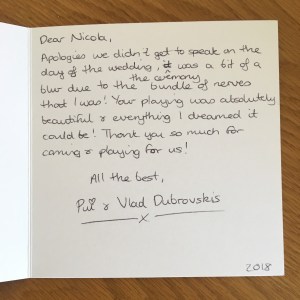 Dear Nicola,
Apologies we didn't get to speak on the
day of the wedding, it was a bit of a
the ceremony
blur due to the bundle of nerves
that I was! Your playing was absolutely
beautiful & everything I dreamed it
could be! Thank you so much for
coming & playing for us!
All the best,
& Vlad Dubrovskis
x
2018